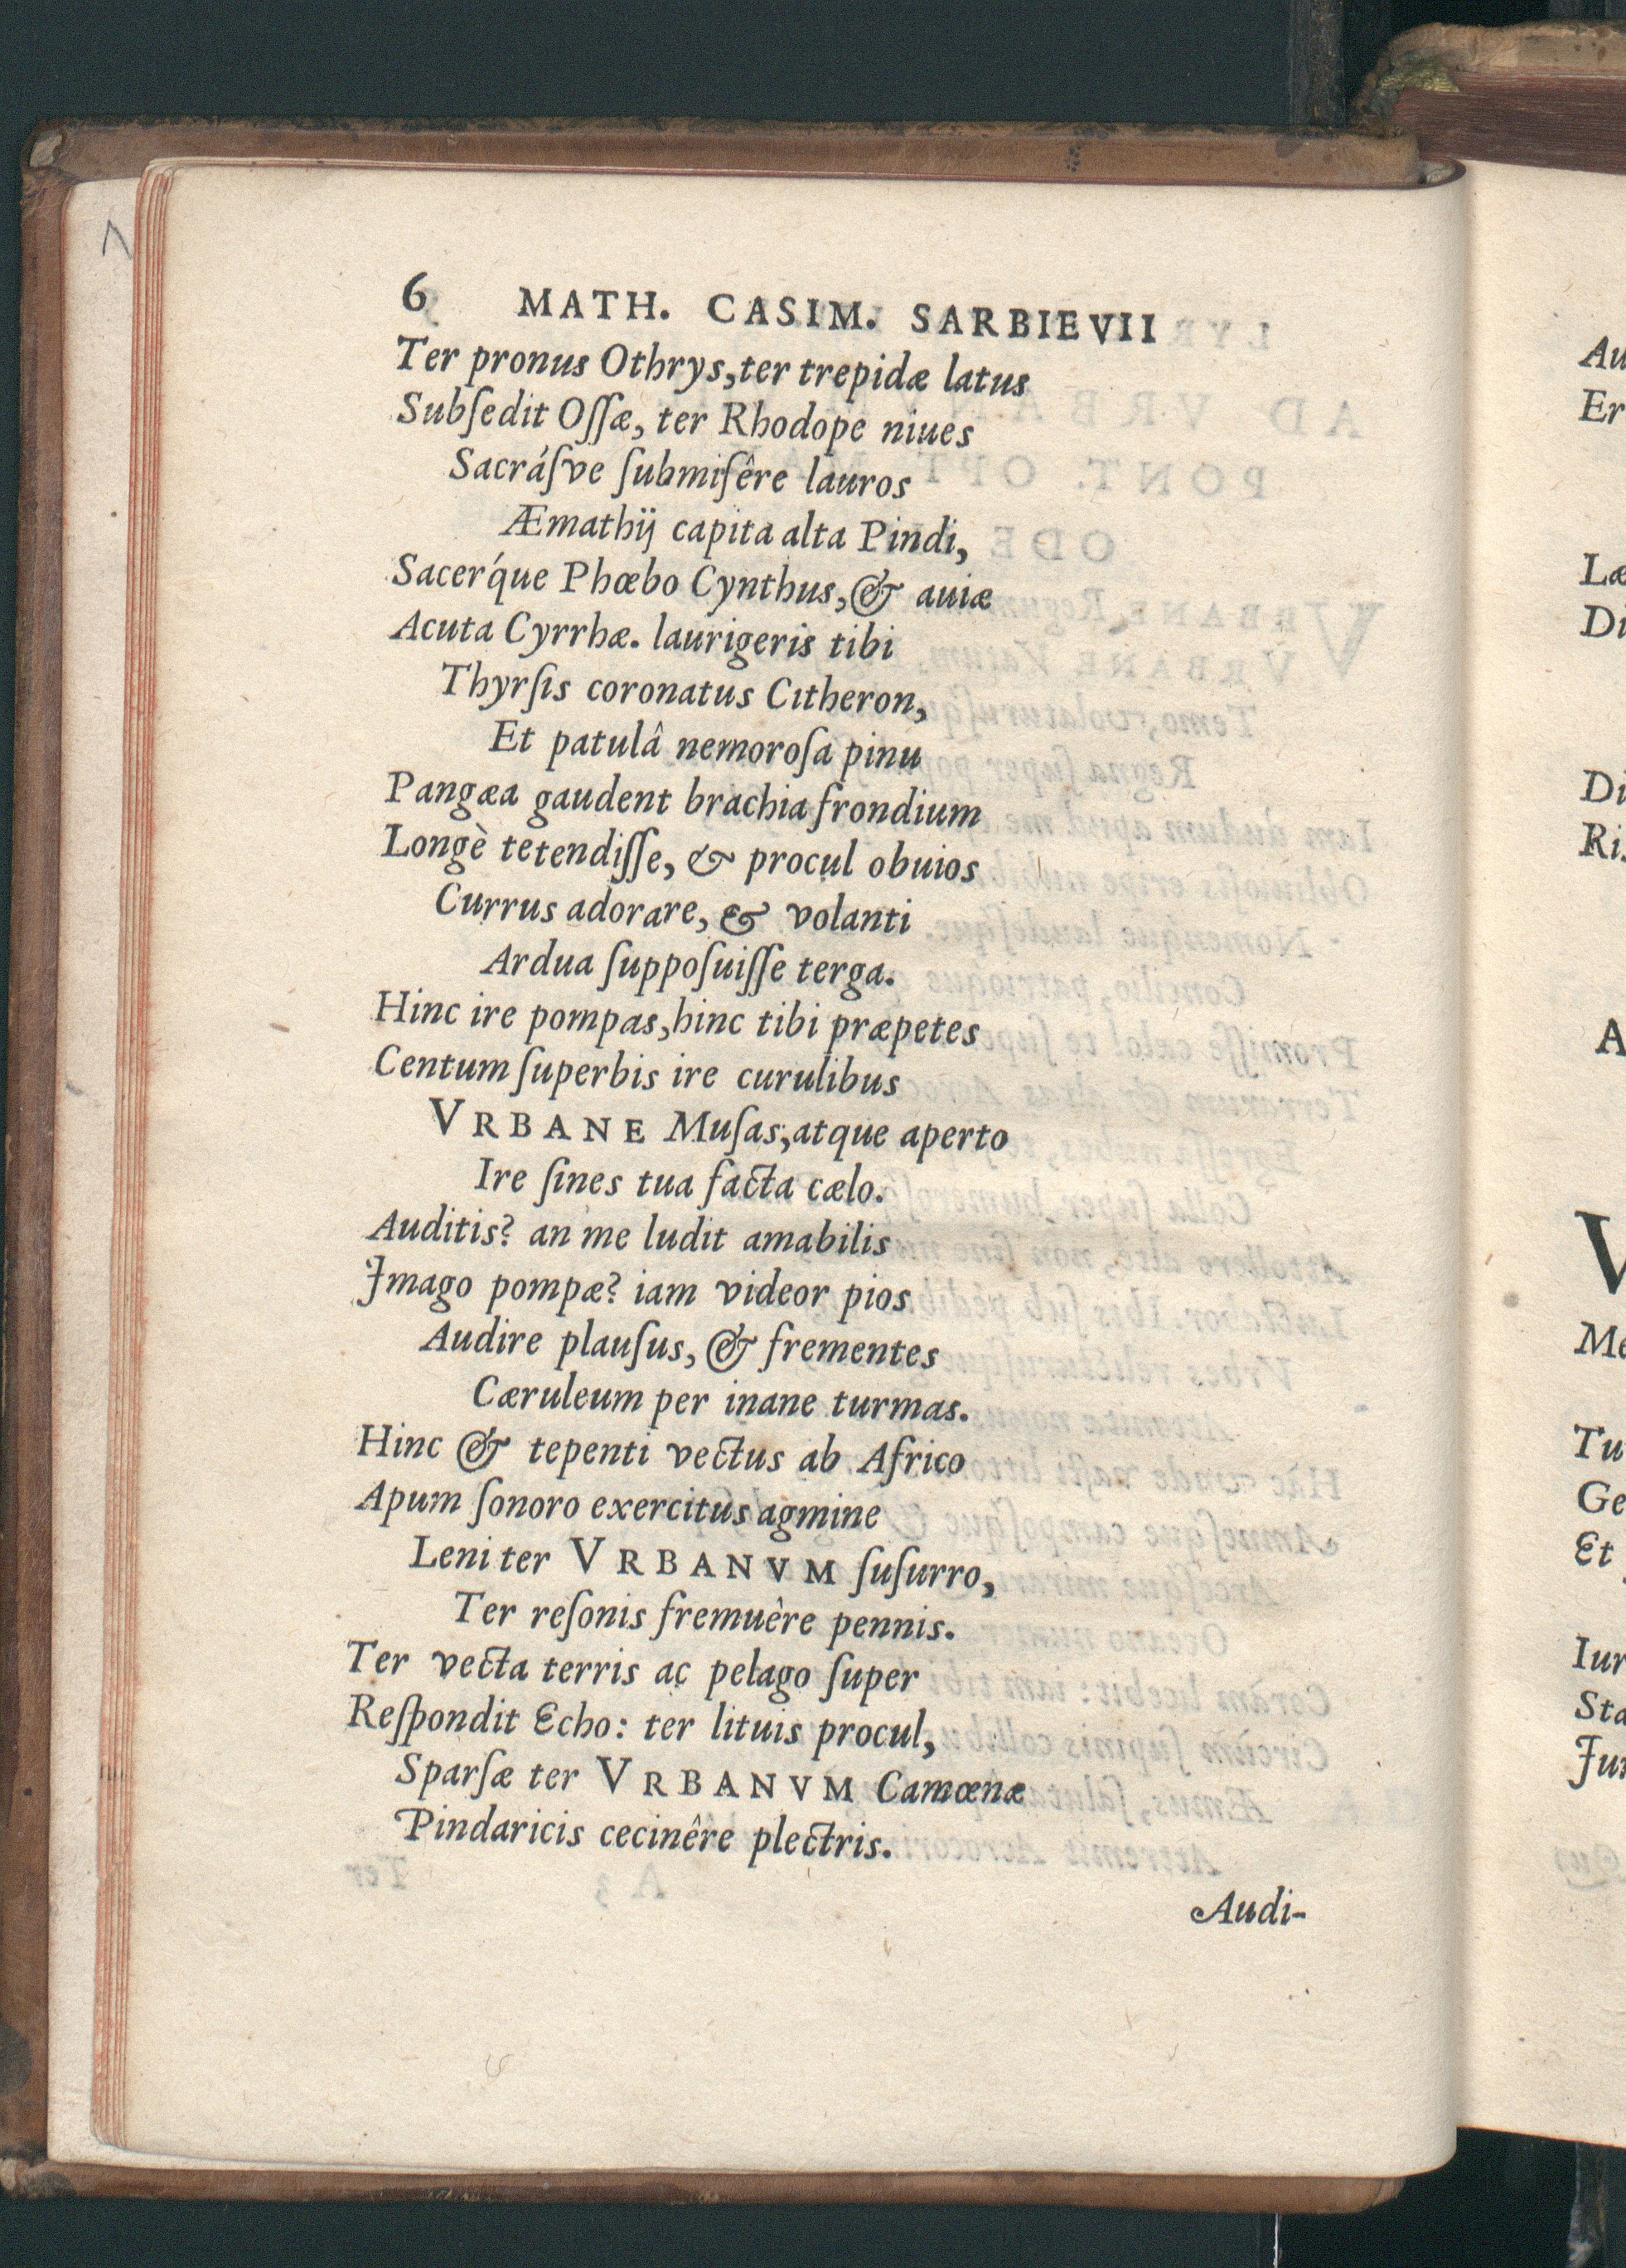 6 MATH. CASIM. SARBIEVII
Ter pronus Othrys, ter trepidæ latus
Subſedit Oſſæ, ter Rhodope niues
Sacráſve ſubmiſêre lauros
Æmathij capita alta Pindi,
Sacerq́ue Phœbo Cynthus, & auiæ
Acuta Cyrrhæ. laurigeris tibi
Thyrſis coronatus Citheron,
Et patulâ nemoroſa pinu
Pangæa gaudent brachia frondium
Longè tetendiſſe, & procul obuios
Currus adorare, & volanti
Ardua ſuppoſuiſſe terga.
Hinc ire pompas, hinc tibi præpetes
Centum ſuperbis ire curulibus
VRBANE Muſas, atque aperto
Ire ſines tua facta cælo.
Auditis? an me ludit amabilis
Imago pompæ? iam videor pios
Audire plauſus, & frementes
Cæruleum per inane turmas.
Hinc & tepenti vectus ab Africo
Apum ſonoro exercitus agmine
Leni ter VRBANVM ſuſurro,
Ter reſonis fremuêre pennis.
Ter vecta terris ac pelago ſuper
Reſpondit Echo: ter lituis procul,
Sparſæ ter VRBANVM Camœnæ
Pindaricis cecinêre plectris.
Audi-
Au
Er
Læ
Di
Di
Ri
A
V
Me
Tu
Ge
Et
Iur
Sta
Iur